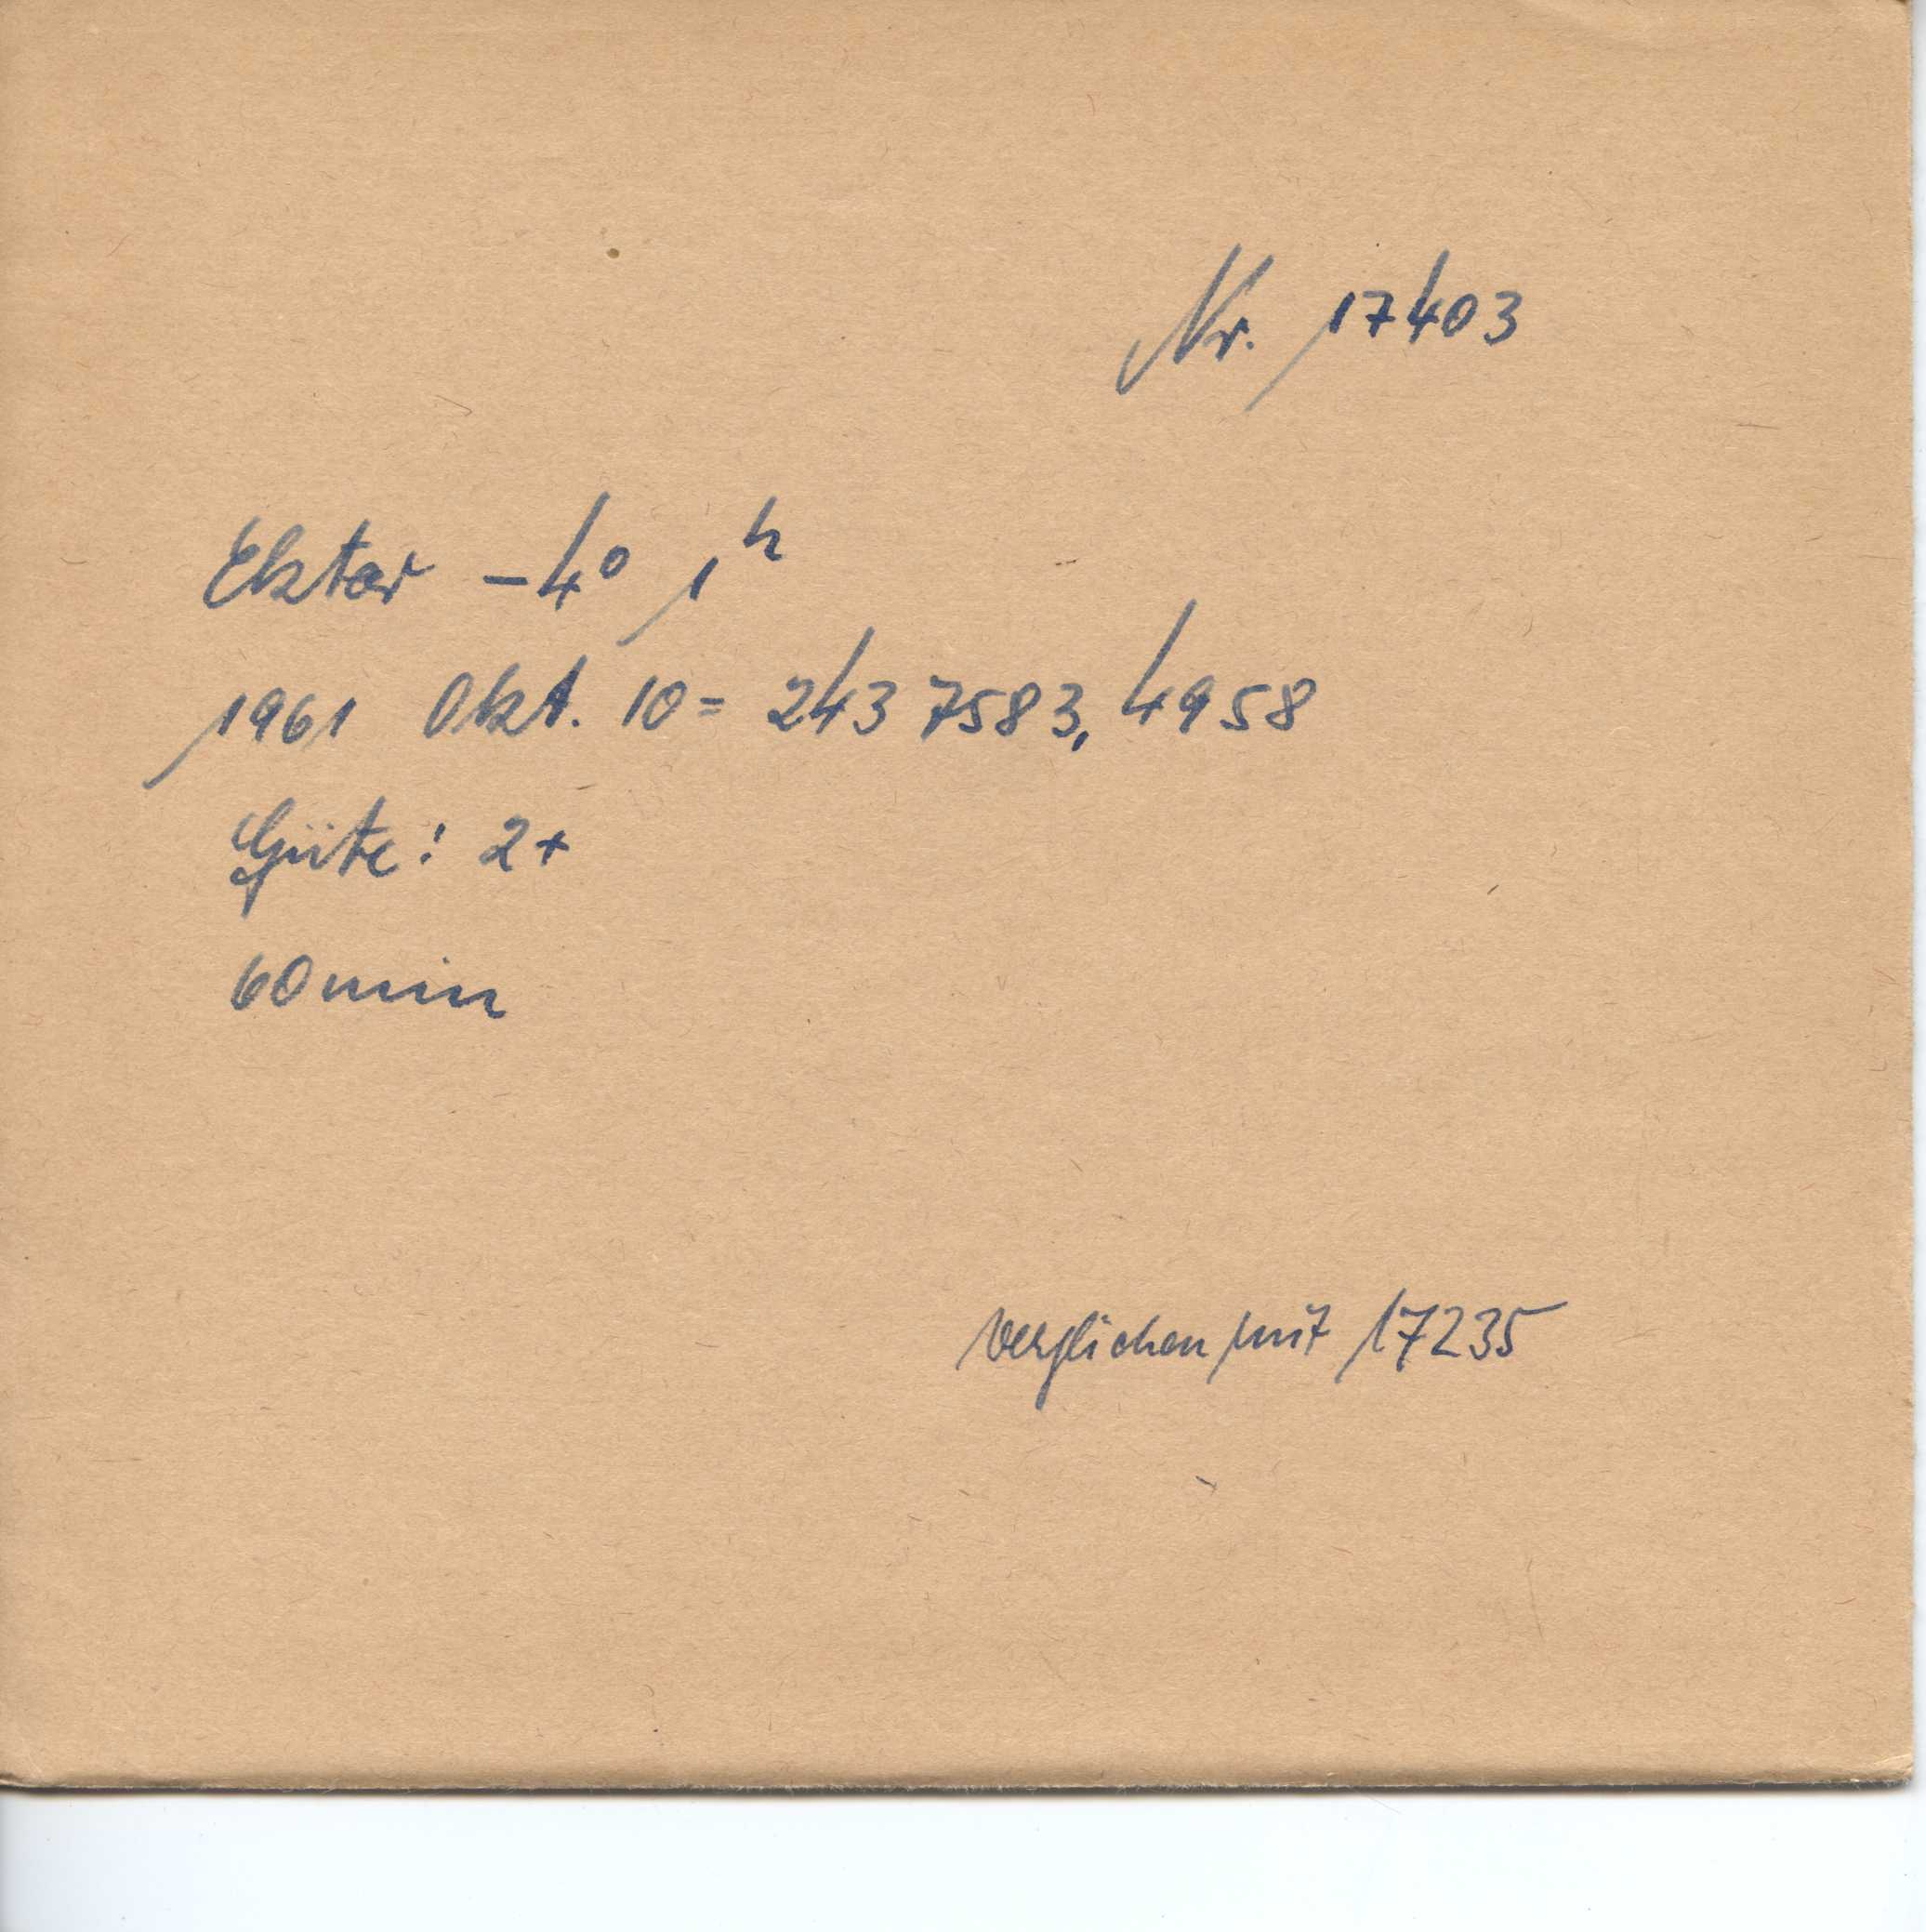 Nr. 17403
Ektar -4° 1h
1961 Okt. 10 = 243 7583,4958
Güte: 2+
60 min
verglichen mit 17235